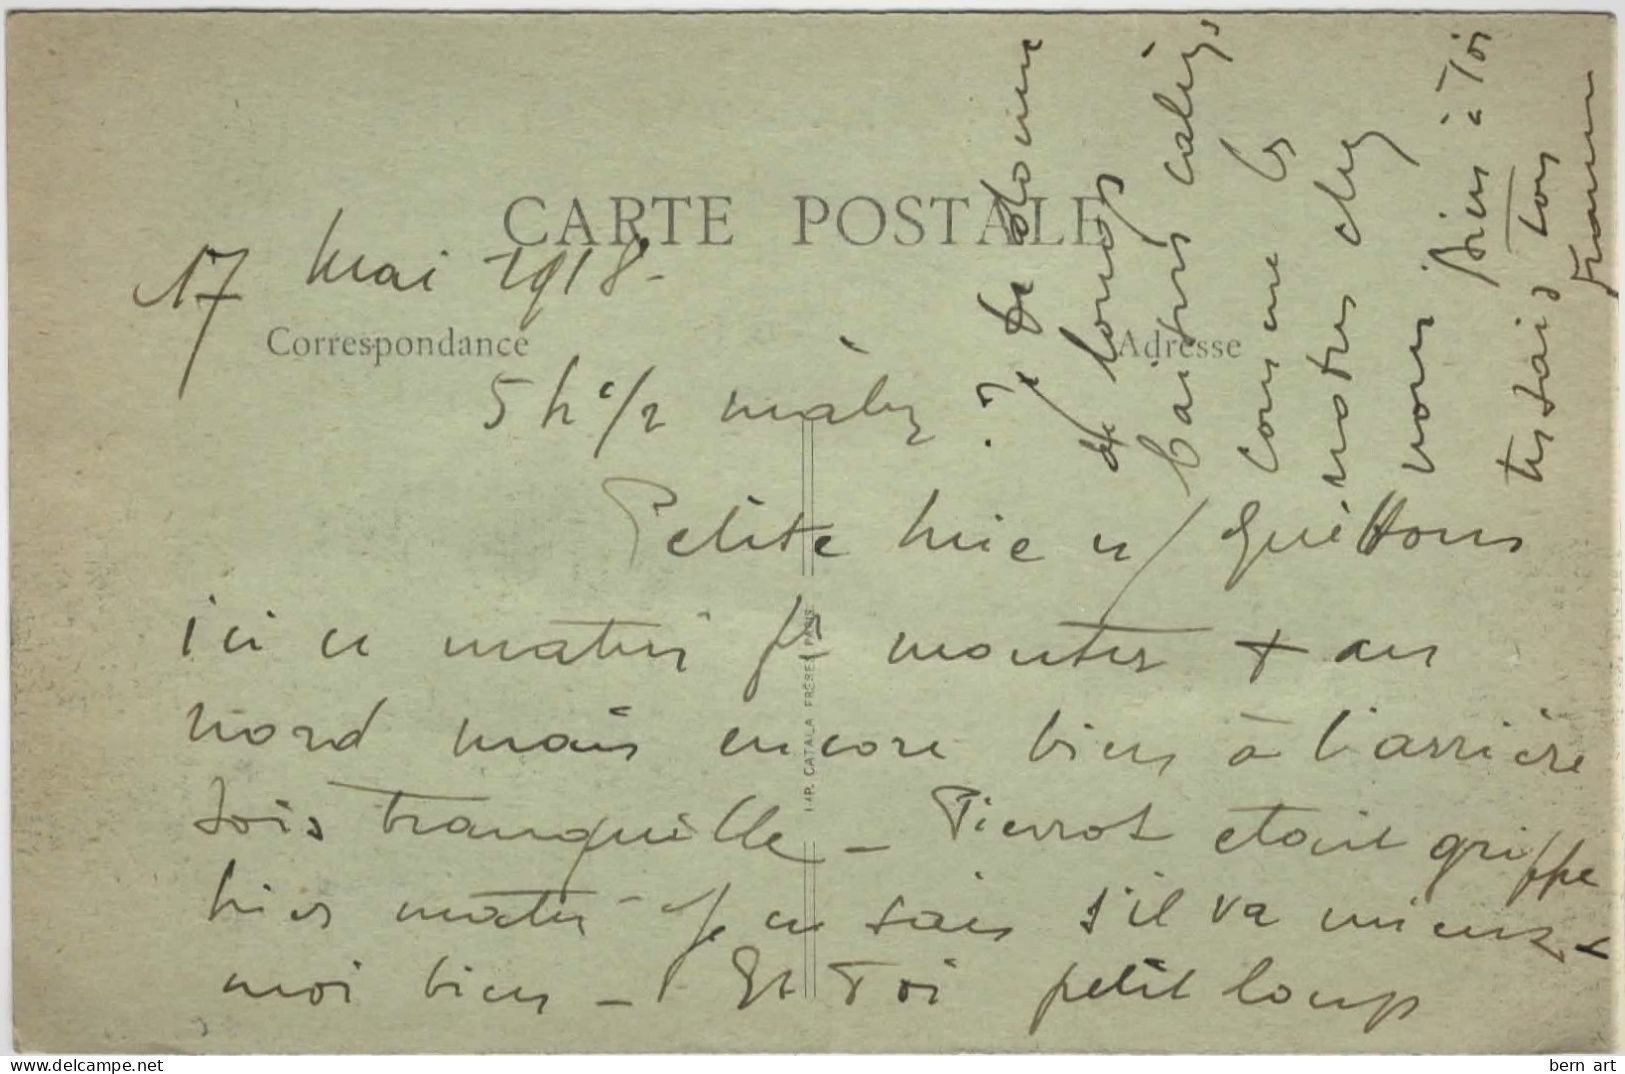 CARTE POSTALE
17 Mai 1918 -
Correspondance
Adresse
5 h 1/2 matin
Petite mie n/ quittons
ici ce matin pr monter + au
nord mais encore bien à l'arrière
sois tranquille - Pierrot etait grippe
hier matin - je ne sais s'il va mieux
moi bien - Et Toi petit loup
? Je te donne
de longs
baisers calins
comme les
notres chez
nous, bien à Toi
Ton
IMP. CATALA FRÈRES PARIS
bern art